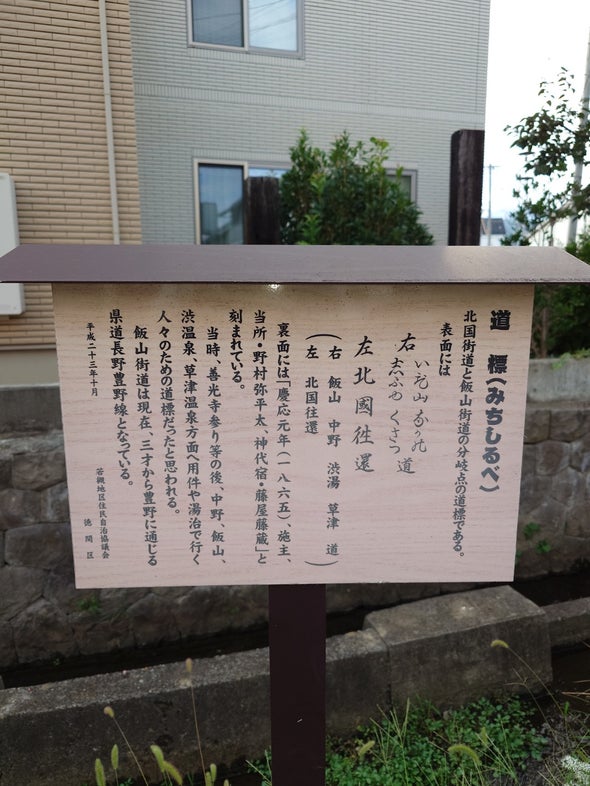 道 標(みちしるべ)
北国街道と飯山街道の分岐点の道標である。
表面には
右 いゐ山 なかの
志ぶゆ くさつ 道
左北國徃還
(右 飯山 中野 渋湯 草津 道)
(左 北国往還 )
裏面には「慶応元年(一八六五)、施主、
当所・野村弥平太、神代宿・藤屋藤蔵」と
刻まれている。
当時、善光寺参り等の後、中野、飯山、
渋温泉、草津温泉方面へ用件や湯治で行く
人々のための道標だったと思われる。
飯山街道は現在、三才から豊野に通じる
県道長野豊野線となっている。
平成二十三年十月
若槻地区住民自治協議会
徳間区